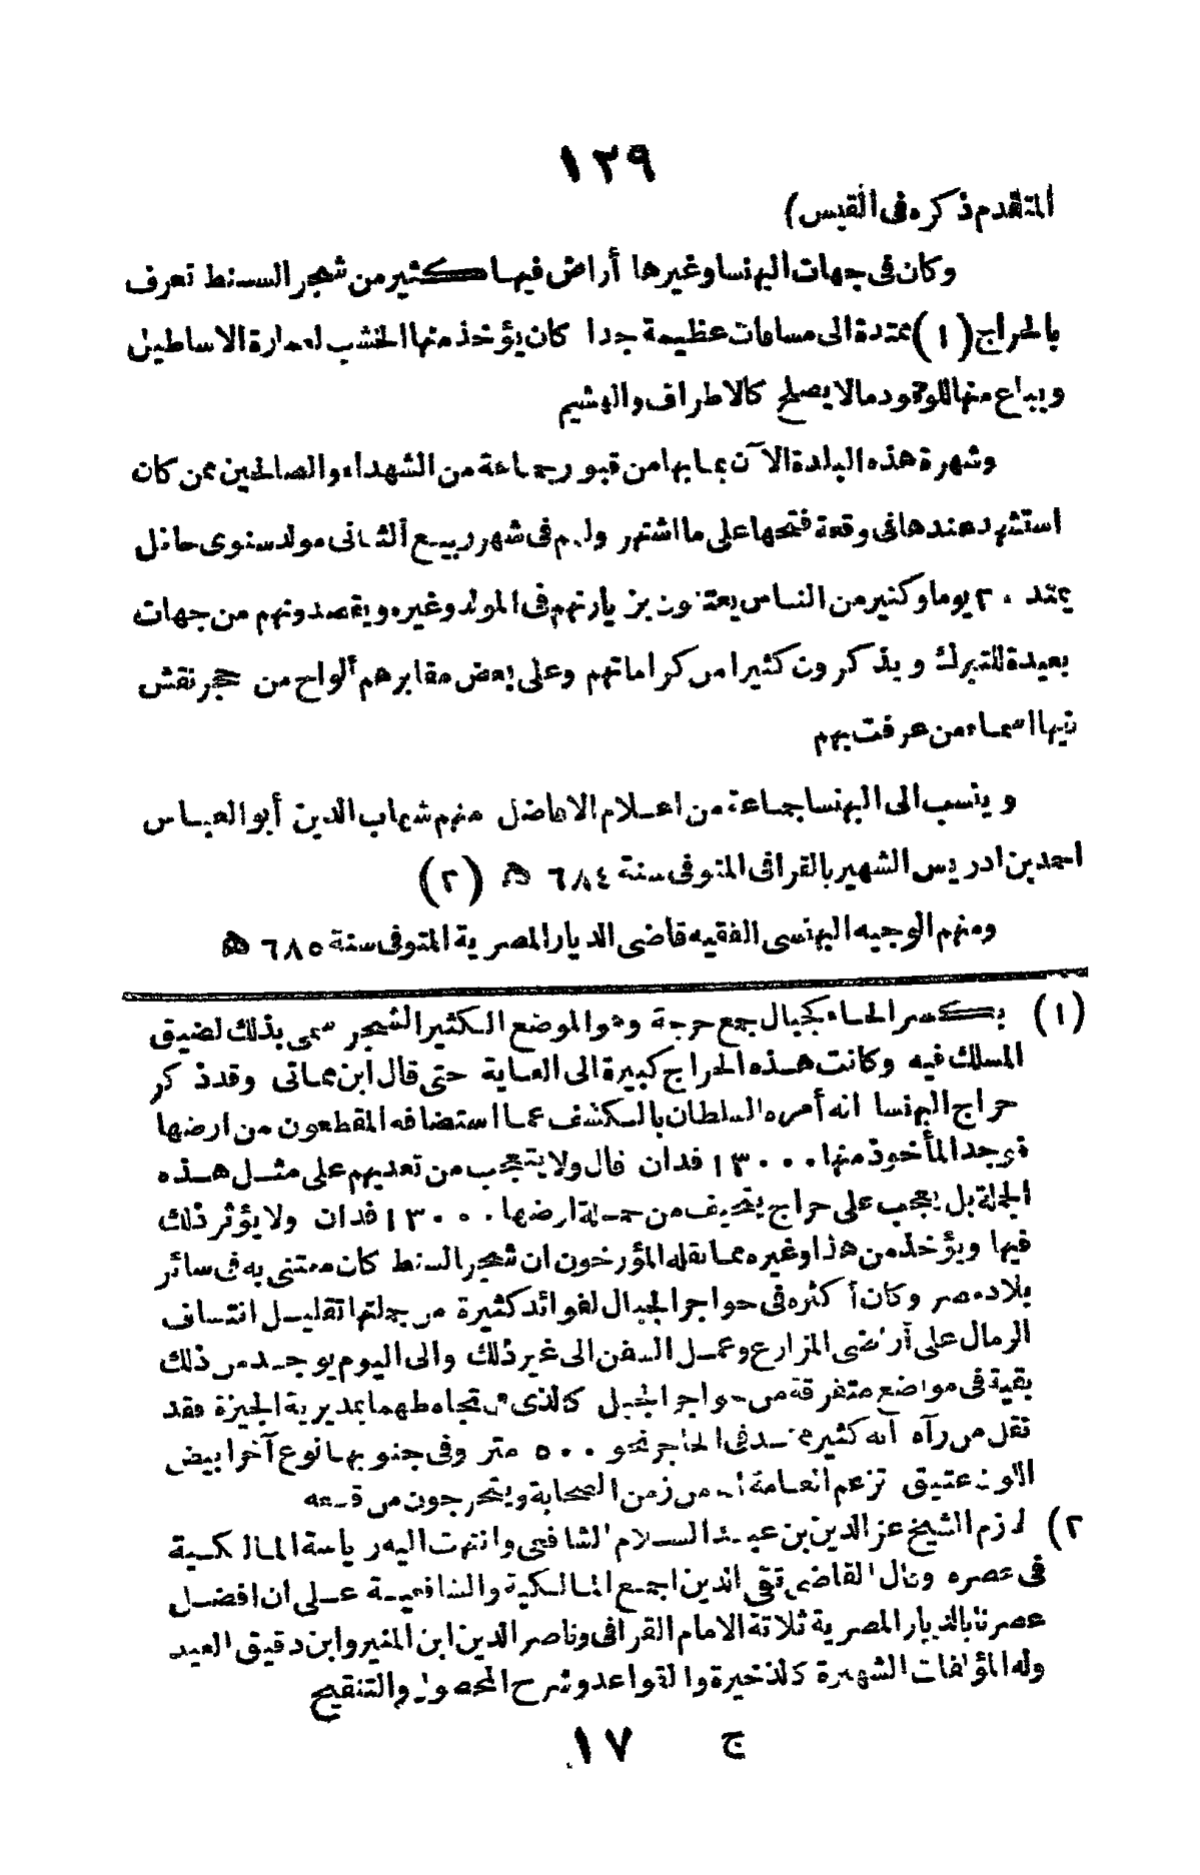 ١٢٩
المتقدم ذكره فى القيس)
وكان فى جهات البهنسا وغيرها أراض فيها كثير من شجر السنط تعرف
بالحراج (١) ممتدة الى مسافات عظيمة جدا كان يؤخذ منها الخشب لعمارة الاساطيل
ويباع منها للوقود مالا يصلح كالاطراف والهشيم
وشهرة هذه البلدة الآن بما بها من قبور جماعة من الشهداء والصالحين ممن كان
استشهد عندها فى وقعة فتحها على ما اشتهر ولهم فى شهر ربيع الثانى مولد سنوى حافل
يمتد ٢٠ يوما وكثير من الناس يعتنون بزيارتهم فى المولد وغيره ويقصدونهم من جهات
بعيدة للتبرك ويذكرون كثيرا من كراماتهم وعلى بعض مقابرهم ألواح من حجر نقش
فيها اسماء من عرفت بهم
وينسب الى البهنسا جماعة من اعلام الافاضل منهم شهاب الدين أبو العباس
احمد بن ادريس الشهير بالقرافى المتوفى سنة ٦٨٤ هـ (٢)
ومنهم الوجيه البهنسى الفقيه قاضى الديار المصرية المتوفى سنة ٦٨٥ هـ
(١) بكسر الحاء كجبال جمع حرجة وهو الموضع الكثير الشجر سمى بذلك لضيق
المسلك فيه وكانت هذه الحراج كبيرة الى الغاية حتى قال ابن مماتى وقد ذكر
حراج البهنسا انه أمره السلطان بالكشف عما استضافه المقطعون من ارضها
فوجد المأخوذ منها ١٣٠٠٠ فدان قال ولا يتعجب من تعديهم على مثل هذه
الجملة بل يعجب على حراج يتحيف من جملة ارضها ١٣٠٠٠ فدان ولا يؤثر ذلك
فيها ويؤخذ من هذا وغيره مما نقله المؤرخون ان شجر السنط كان معتنى به فى سائر
بلاد مصر وكان أكثره فى حواجر الجبال لفوائد كثيرة من جملتها تقليل انتساف
الرمال على أرضى المزارع وعمل السفن الى غير ذلك والى اليوم يوجد من ذلك
بقية فى مواضع متفرقة من حواجر الجبل كالذى من تجاه طهما بمديرية الجيزة فقد
نقل من رآه انه كثير ممتد فى الحاجر نحو ٥٠٠ متر وفى جنوبها نوع آخر ابيض
اللون عتيق تزعم العامة انه من زمن الصحابة ويتحرجون من قطعه
(٢ لازم الشيخ عز الدين بن عبد السلام الشافعى وانتهت اليه رياسة المالكية
فى عصره وقال القاضى تقى الدين اجمع المالكية والشافعية على ان افضل
عصرنا بالديار المصرية ثلاثة الامام القرافى وناصر الدين ابن المنير وابن دقيق العيد
وله المؤلفات الشهيرة كالذخيرة والقواعد وشرح المحصول والتنقيح
ج ١٧